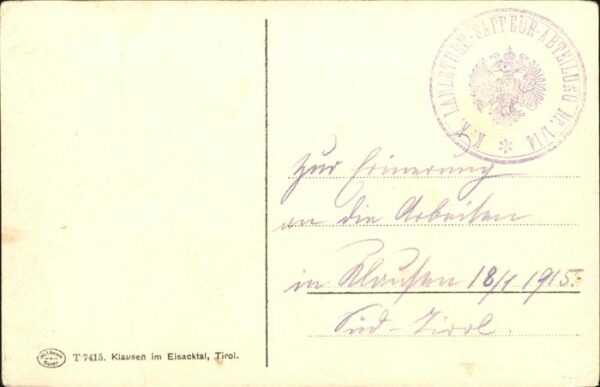 K.K. LANDSTURM-SAPPEUR-ABTEILUNG Nr. 1/14
Zur Erinerung
an die Arbeiten
in Klausen 18/1 1915.
Süd-Tirol.
T 7415. Klausen im Eisacktal, Tirol.